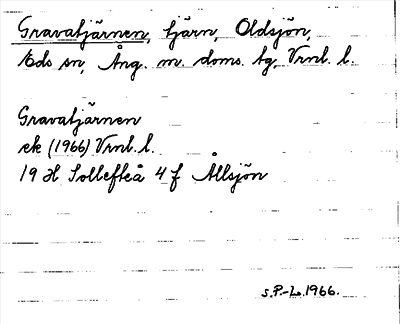 Gravatjärnen, tjärn, Oldsjön,
Eds sn, Ång. m. doms. tg, Vrnl. l.
Gravatjärnen
ek (1966) Vrnl. l.
19 H Sollefteå 4 f Ållsjön
s.P.-L. 1966.